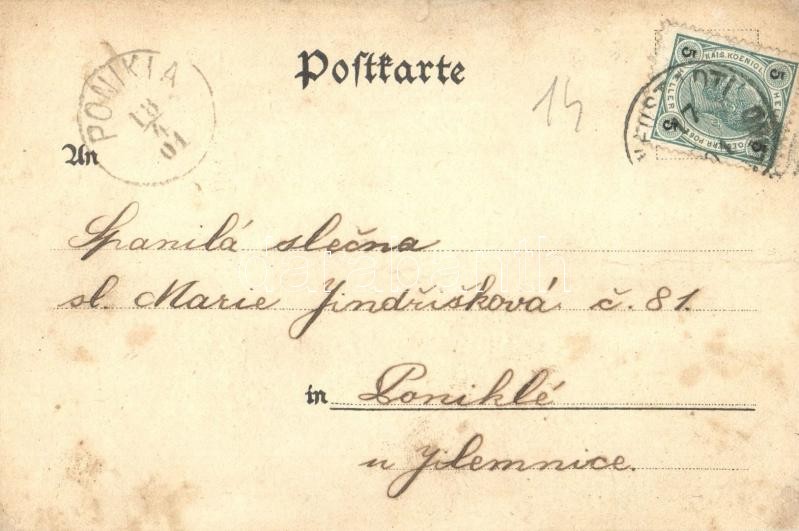 Postkarte
PONIKLA
18
01
14
5 KAIS. KOENIGL. 5
HELLER HELLER
5 OESTERR. POST 5
An
Spanilá slečna
sl. Marie Jindřišková č. 81.
in Poniklé
u Jilemnice.